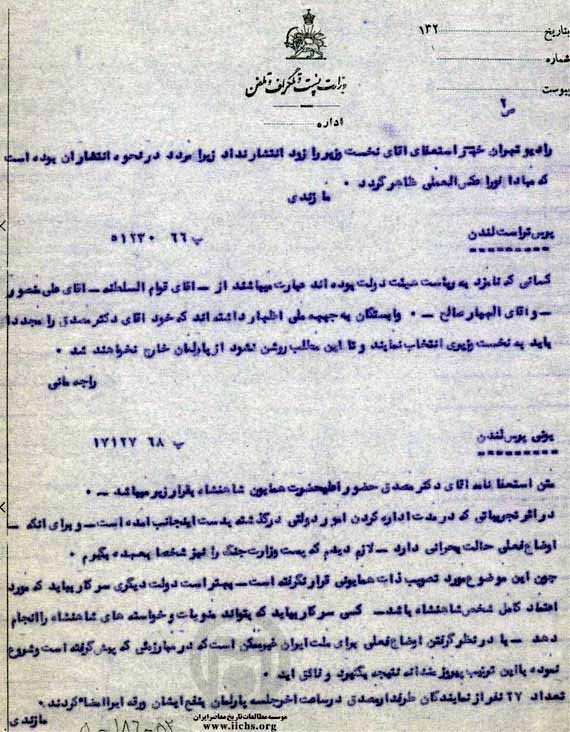 بتاریخ ۱۳۲
شماره
پیوست
وزارت پست و تلگراف و تلفن
اداره
ص ۲
رادیو تهران خبر استعفای اقای نخست وزیر را زود انتشار نداد زیرا مردد در نحوه انتشار ان بوده است
که مبادا فورا عکس العملی ظاهر گردد ٠
مازندی
پرس تراست لندن پ ۶۶ ۵۱۲۳۰
کسانی که نامزد به ریاست هیئت دولت بوده اند عبارت میباشند از – اقای قوام السلطنه – اقای علی منصور
– و اقای الهیار صالح – ٠ وابستگان به جبهه ملی اظهار داشته اند که خود اقای دکتر مصدق را مجددا
باید به نخست وزیری انتخاب نمایند و تا این مطلب روشن نشود از پارلمان خارج نخواهند شد ٠
راجه مانی
یونی پرس لندن پ ۶۸ ۱۷۱۲۷
متن استعفا نامه اقای دکتر مصدق حضور اعلیحضرت همایون شاهنشاه بقرار زیر میباشد – ٠
در اثر تجربیاتی که در مدت اداره کردن امور دولتی در گذشته بدست اینجانب امده است – و برای انکه –
اوضاع فعلی حالت بحرانی دارد – لازم دیدم که پست وزارت جنگ را نیز شخصا بعهده بگیرم ٠
چون این موضوع مورد تصویب ذات همایونی قرار نگرفته است – بهتر است دولت دیگری سر کار بیاید که مورد
اعتماد کامل شخص شاهنشاه باشد – کسی سر کار بیاید که بتواند منویات و خواسته های شاهنشاه را انجام
دهد – با در نظر گرفتن اوضاع فعلی برای ملت ایران غیر ممکن است که در مبارزش که پیش گرفته است و شروع
نموده با این ترتیب پیروز مندانه نتیجه بگیرد و فائق اید ٠
تعداد ۲۷ نفر از نمایندگان طرفدار مصدق در ساعت اخر جلسه پارلمان بنفع ایشان ورقه ای را امضا کردند ٠
مازندی
موسسه مطالعات تاریخ معاصر ایران
www.iichs.org